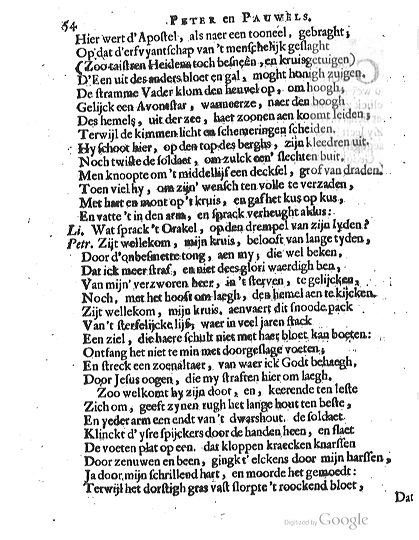 64 PETER en PAUWELS.
Hier wert d'Apostel, als naer een tooneel, gebraght;
Op dat d'erfvyantschap van 't menschelijk geslaght
(Zoo taistren Heidenst toch besneên, en kruisgetuigen)
D'Een uit des anders bloet en gal, moght honigh zuigen.
De stramme Vader klom den heuvel op, om hoogh,
Gelijck een Avonstar, wanneerze, naer den boogh
Des hemels, uit der zee, haer zoonen aen koomt leiden,
Terwijl de kimmen licht en schemeringen scheiden.
Hy schoot hier, op den top des berghs, zijn kleedren uit.
Noch twiste de soldaet, om zulck een' slechten buit.
Men knoopte om 't middellijf een decksel, grof van draden.
Toen viel hy, om zijn' wensch ten volle te verzaden,
Met hart en mont op 't kruis, en gaf het kus op kus,
En vatte 't in den arm, en sprack verheught aldus:
Li. Wat sprack 't Orakel, op den drempel van zijn lyden?
Petr. Zijt wellekom, mijn kruis, belooft van lange tyden,
Door d'onbesmette tong, aen my, die wel beken,
Dat ick meer straf, en niet dees glori waerdigh ben,
Van mijn' verzworen heer, in 't sterven, te gelijcken,
Noch, met het hooft om laegh, den hemel aen te kijcken.
Zijt wellekom, mijn kruis, aenvaert dit snoode pack
Van 't sterfelijcke lijf, waer in veel jaren stack
Een ziel, die haere schult niet met haer bloet kan boeten:
Ontfang het niet te min met doorgeslage voeten,
En streck een zoenaltaer, van waer ick Godt behaegh,
Door Jesus oogen, die my straffen hier om laegh.
Zoo welkomt hy zijn door, en, keerende ten leste
Zich om, geeft zynen rugh het lange hout ten beste,
En yeder arm een endt van 't dwarshout. de soldaet
Klinckt d'ysre spijckers door de handen heen, en slaet
De voeten plat op een. dat kloppen kraecken knarssen
Door zenuwen en been, gingk t'elckens door mijn harssen,
Ja door mijn schrillend hart, en moorde het gemoedt:
Terwijl het dorstigh gras vast slorpte 't roockend bloet,
Dat
Digitized by Google